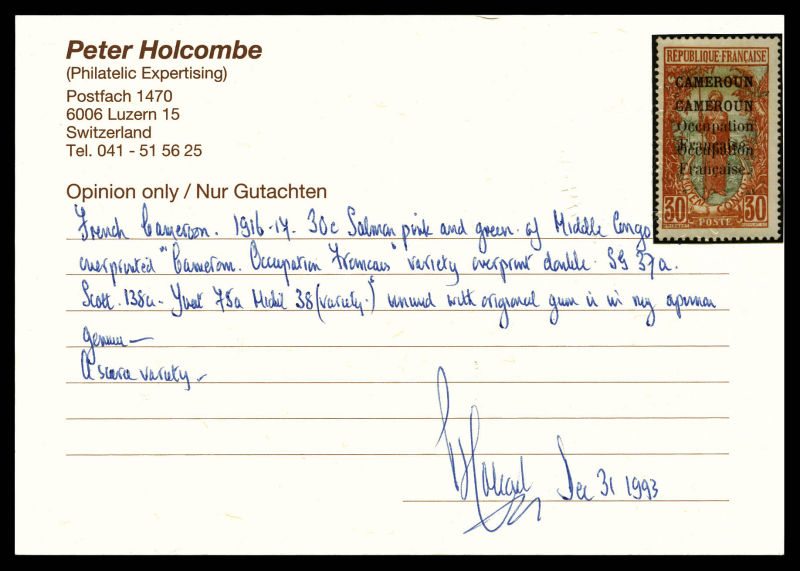 Peter Holcombe
(Philatelic Expertising)
Postfach 1470
6006 Luzern 15
Switzerland
Tel. 041 - 51 56 25
Opinion only / Nur Gutachten
French Cameroon. 1916-17. 30c Salmon pink and green of Middle Congo
overprinted "Cameroun. Occupation Francais" variety overprint double. SG 37a.
Scott. 138a - Yvet 75a Michel 38 (variety) unused with original gum is in my opinion
genuine —
A scarce variety —
Dec 31 1993
RÉPUBLIQUE·FRANÇAISE
CAMEROUN
CAMEROUN
Occupation
Française.
Occupation
Française.
MOYEN CONGO
30 POSTE 30